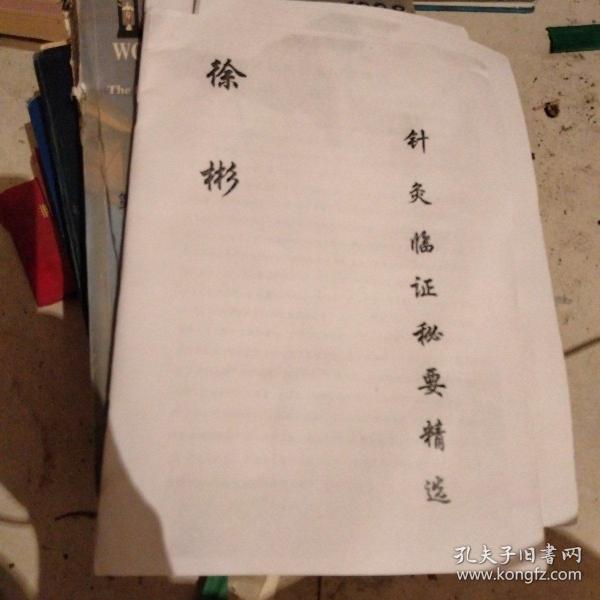 徐彬
针灸临证秘要精选
WO
The
孔夫子旧書网
www.kongfz.com